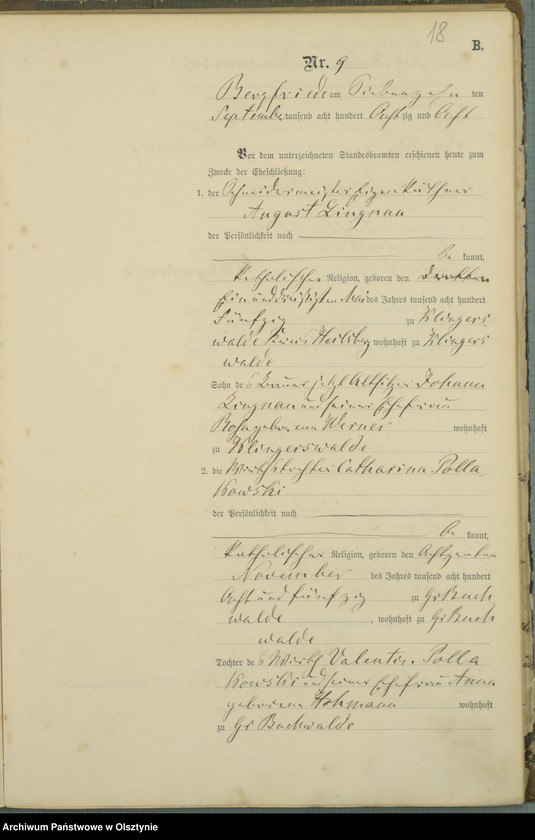 18
B.
Nr. 9
Bergfriede am Siebenzehn ten
September tausend acht hundert Achtzig und Acht
Vor dem unterzeichneten Standesbeamten erschienen heute zum
Zwecke der Eheschließung:
1. der Schneidermeister Eigenkäthner
August Lingnau
der Persönlichkeit nach
be kannt,
katholischer Religion, geboren den
Einunddreißigsten Mai des Jahres tausend acht hundert
Fünfzig zu Klingers
walde Kreis Heilsberg wohnhaft zu Klingers
walde
Sohn des Bauer jetzt Altsitzer Johann
Lingnau und seiner Ehefrau
Rosa geborene Werner wohnhaft
zu Klingerswalde
2. die Wirthstochter Catharina Polla
kowski
der Persönlichkeit nach
be kannt,
katholischer Religion, geboren den Achtzehnten
November des Jahres tausend acht hundert
Acht und fünfzig zu Gr Buch
walde, wohnhaft zu Gr Buch
walde
Tochter des Wirth Valentin Polla
kowski und seiner Ehefrau Anna
geborene Hohmann wohnhaft
zu Gr Buchwalde
Archiwum Państwowe w Olsztynie